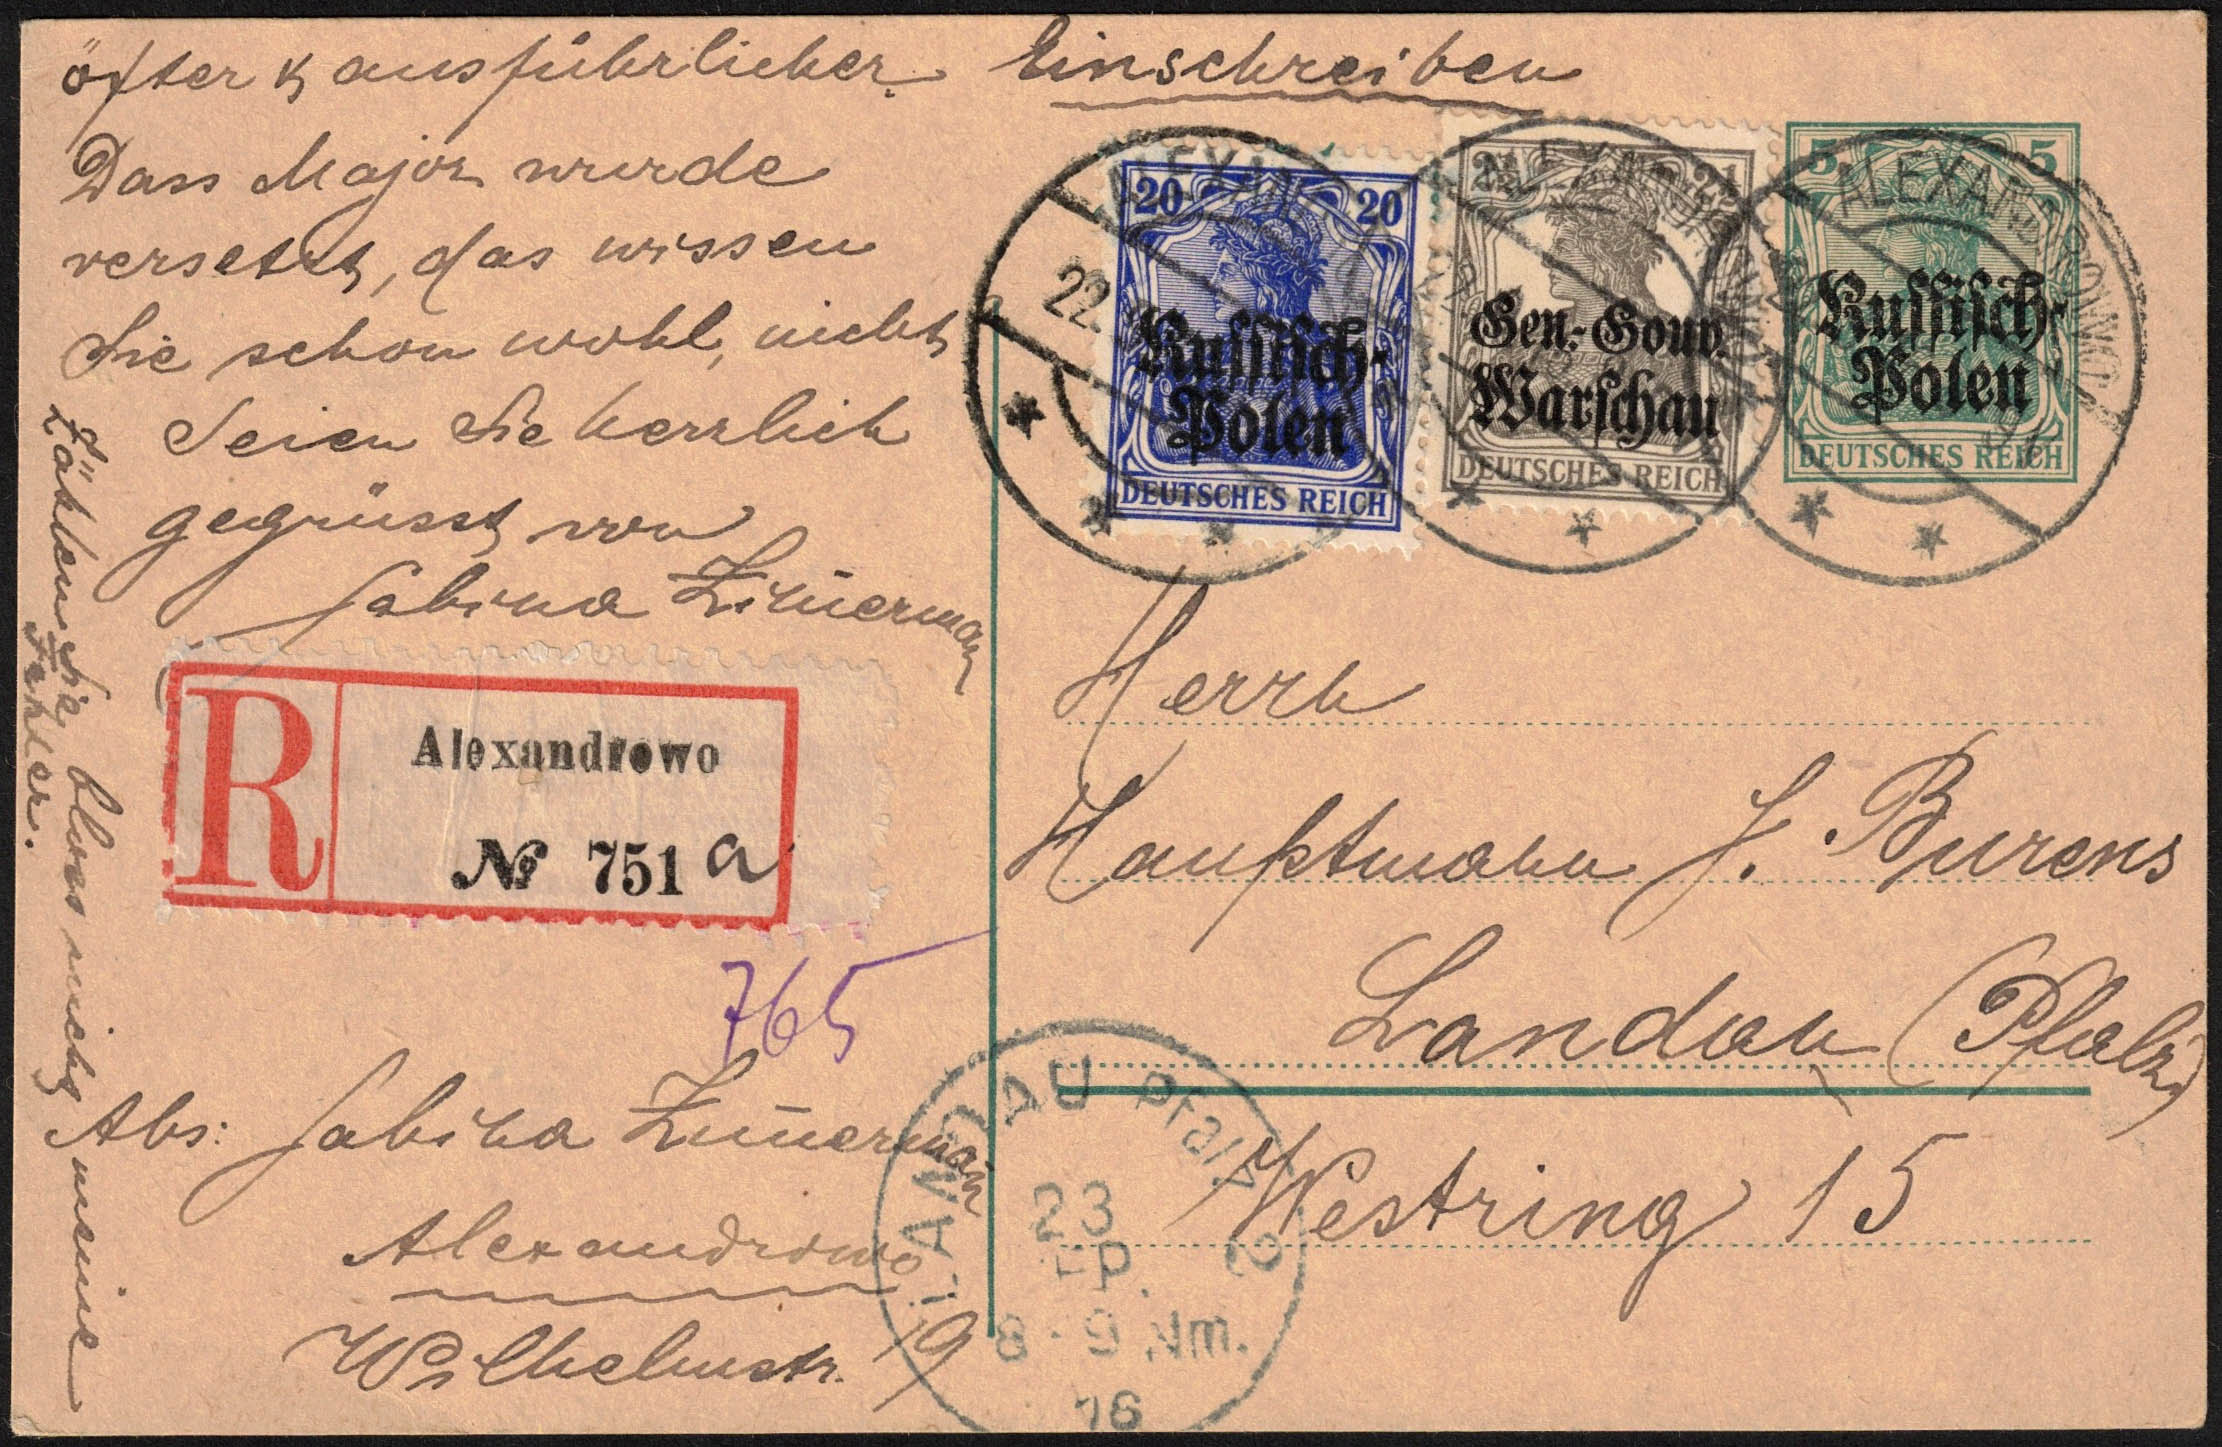 öfter & ausführlicher.
Dass Major wurde
versetzt, das wissen
Sie schon wohl, nicht
Seien Sie herzlich
gegrüsst von
Sabina Zimerman
Zählen Sie bloss nicht meine
Fehler.
Einschreiben
20 20
Russisch-
Polen
DEUTSCHES REICH
2½ 2½
Gen.-Gouv.
Warschau
DEUTSCHES REICH
5 5
Russisch-
Polen
DEUTSCHES REICH
ALEXANDROWO
22.
R
Alexandrowo
№ 751 a
765
Herrn
Hauptmann J. Burens
Landau (Pfalz)
Westring 15
Abs: Sabina Zimerman
Alexandrowo
Wilhelmstr. 19
LANDAU Pfalz 2
23
EP.
8-9 Nm.
16